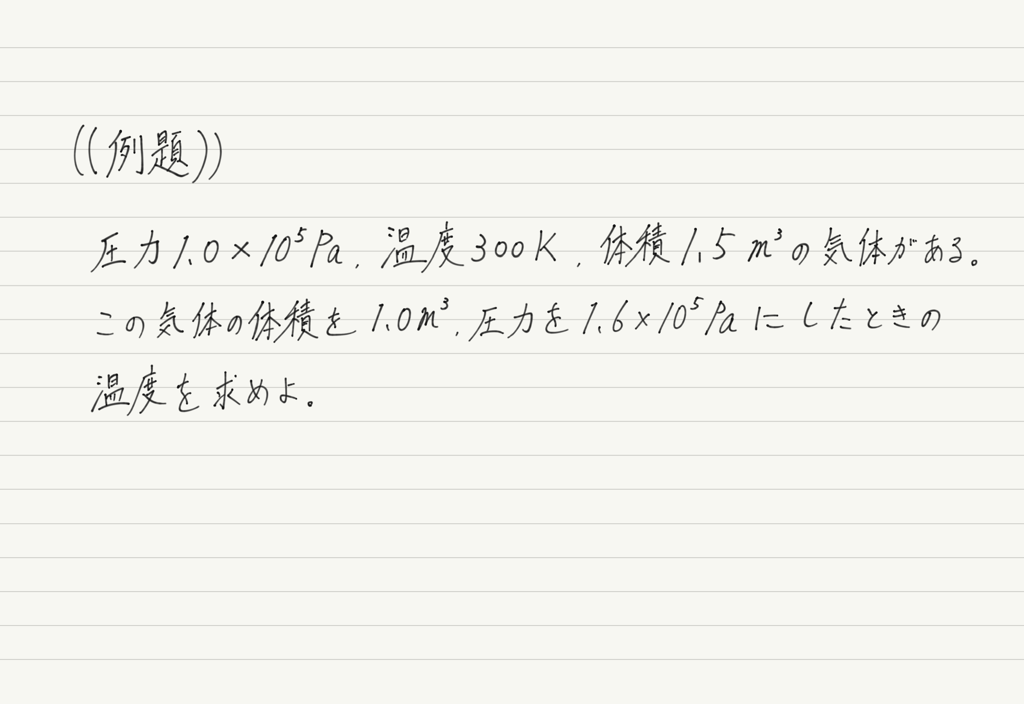 ((例題))
圧力1.0×10⁵Pa, 温度300K, 体積1.5m³の気体がある。
この気体の体積を1.0m³, 圧力を1.6×10⁵Paにしたときの
温度を求めよ。